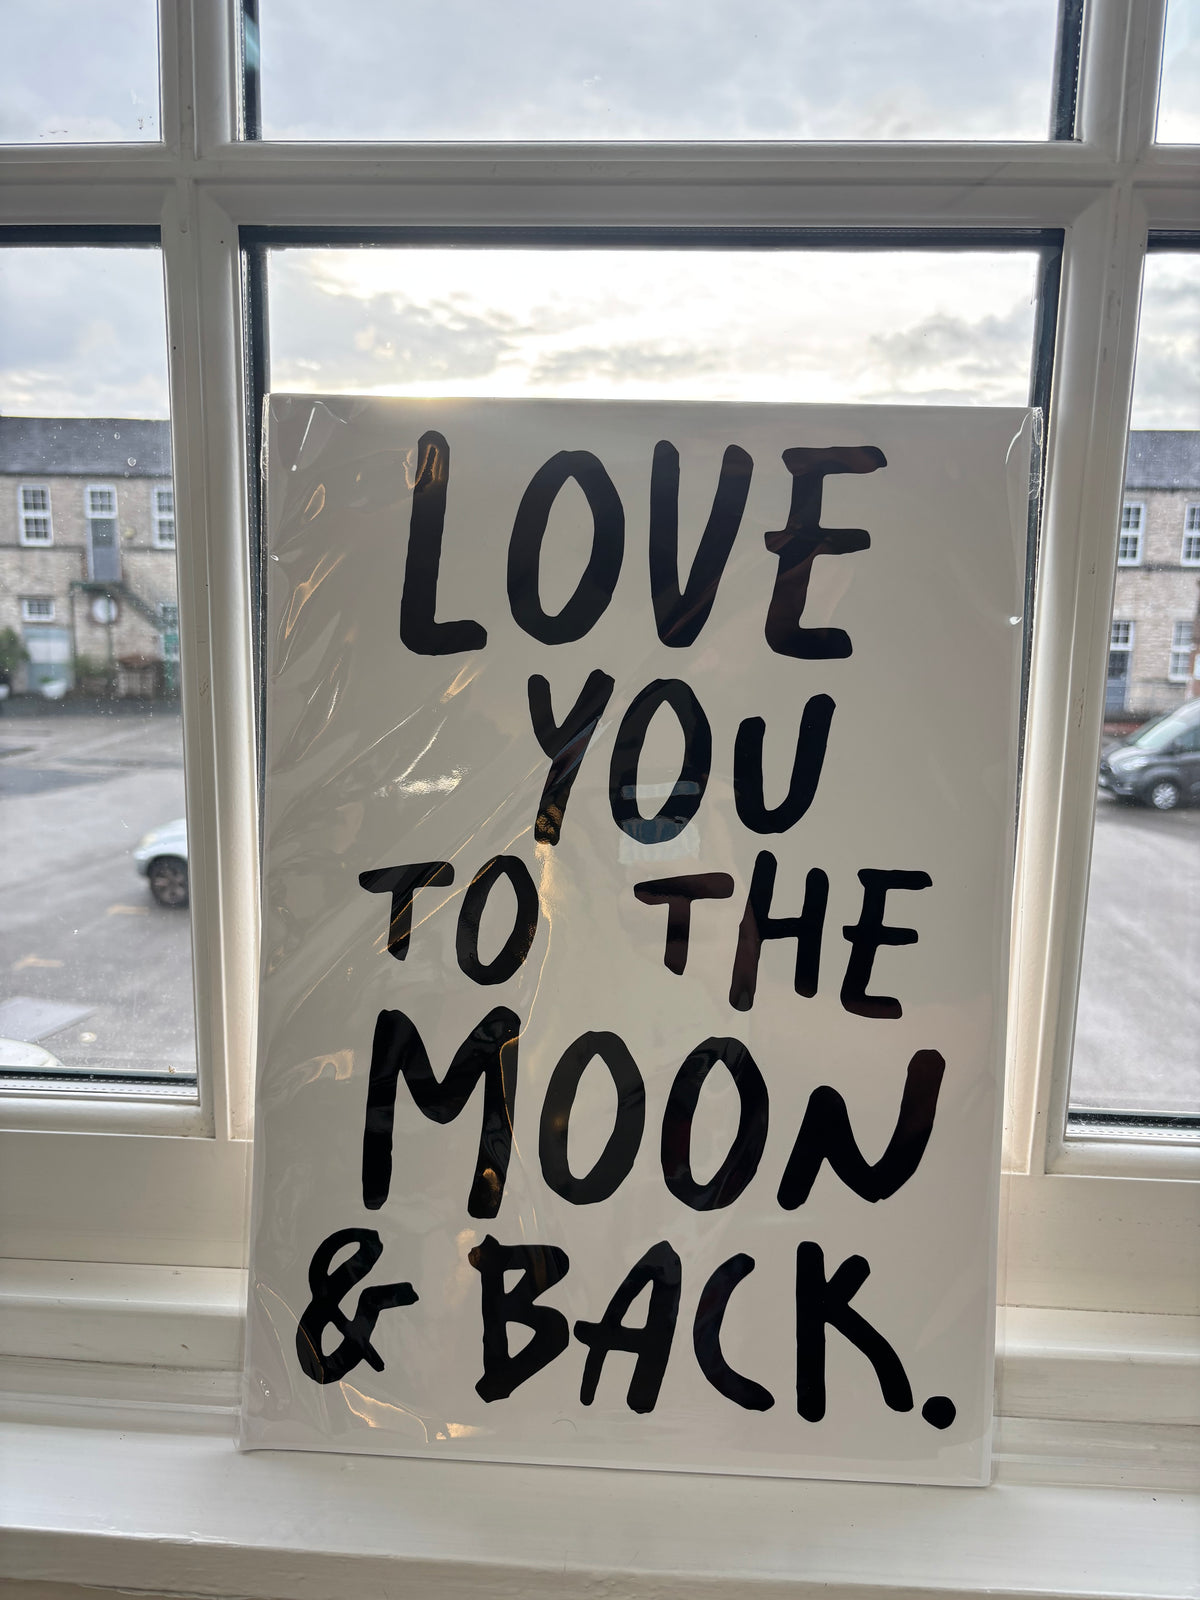 LOVE
YOU
TO THE
MOON
& BACK.